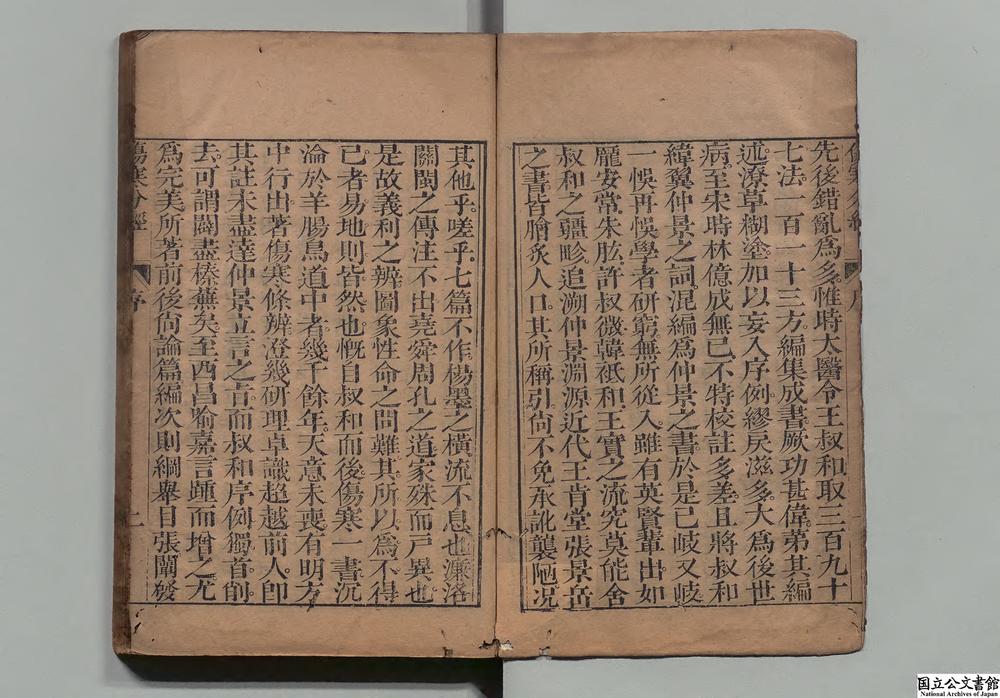 先後錯亂爲多惟時大醫令王叔和取三百九十
七法一百一十三方編集成書厥功甚偉第其編
述潦草糊塗加以妄入序例繆戾滋多大爲後世
病至宋時林億成無己不特校註多差且將叔和
緯翼仲景之詞混編爲仲景之書於是已岐又岐
一悞再悞學者硏窮無所從入雖有英賢輩出如
龐安常朱肱許叔微韓祇和王實之流究莫能舍
叔和之疆畛追溯仲景淵源近代王肯堂張景岳
之書皆膾炙人口其所稱引尙不免承訛襲陋况
其他乎嗟乎七篇不作楊墨之橫流不息也濂洛
關閩之傳注不出堯舜周孔之道家殊而戸異也
是故義利之辨圖象性命之問難其所以爲不得
已者易地則皆然也慨自叔和而後傷寒一書沉
淪於羊腸鳥道中者幾千餘年天意未喪有明方
中行出著傷寒條辨澄幾硏理卓識超越前人卽
其註未盡達仲景立言之旨而叔和序例獨首削
去可謂闢盡榛蕪矣至西昌喻嘉言踵而增之尤
爲完美所著前後尙論篇編次則綱舉目張闡發
傷寒分經
序
二
国立公文書館
National Archives of Japan